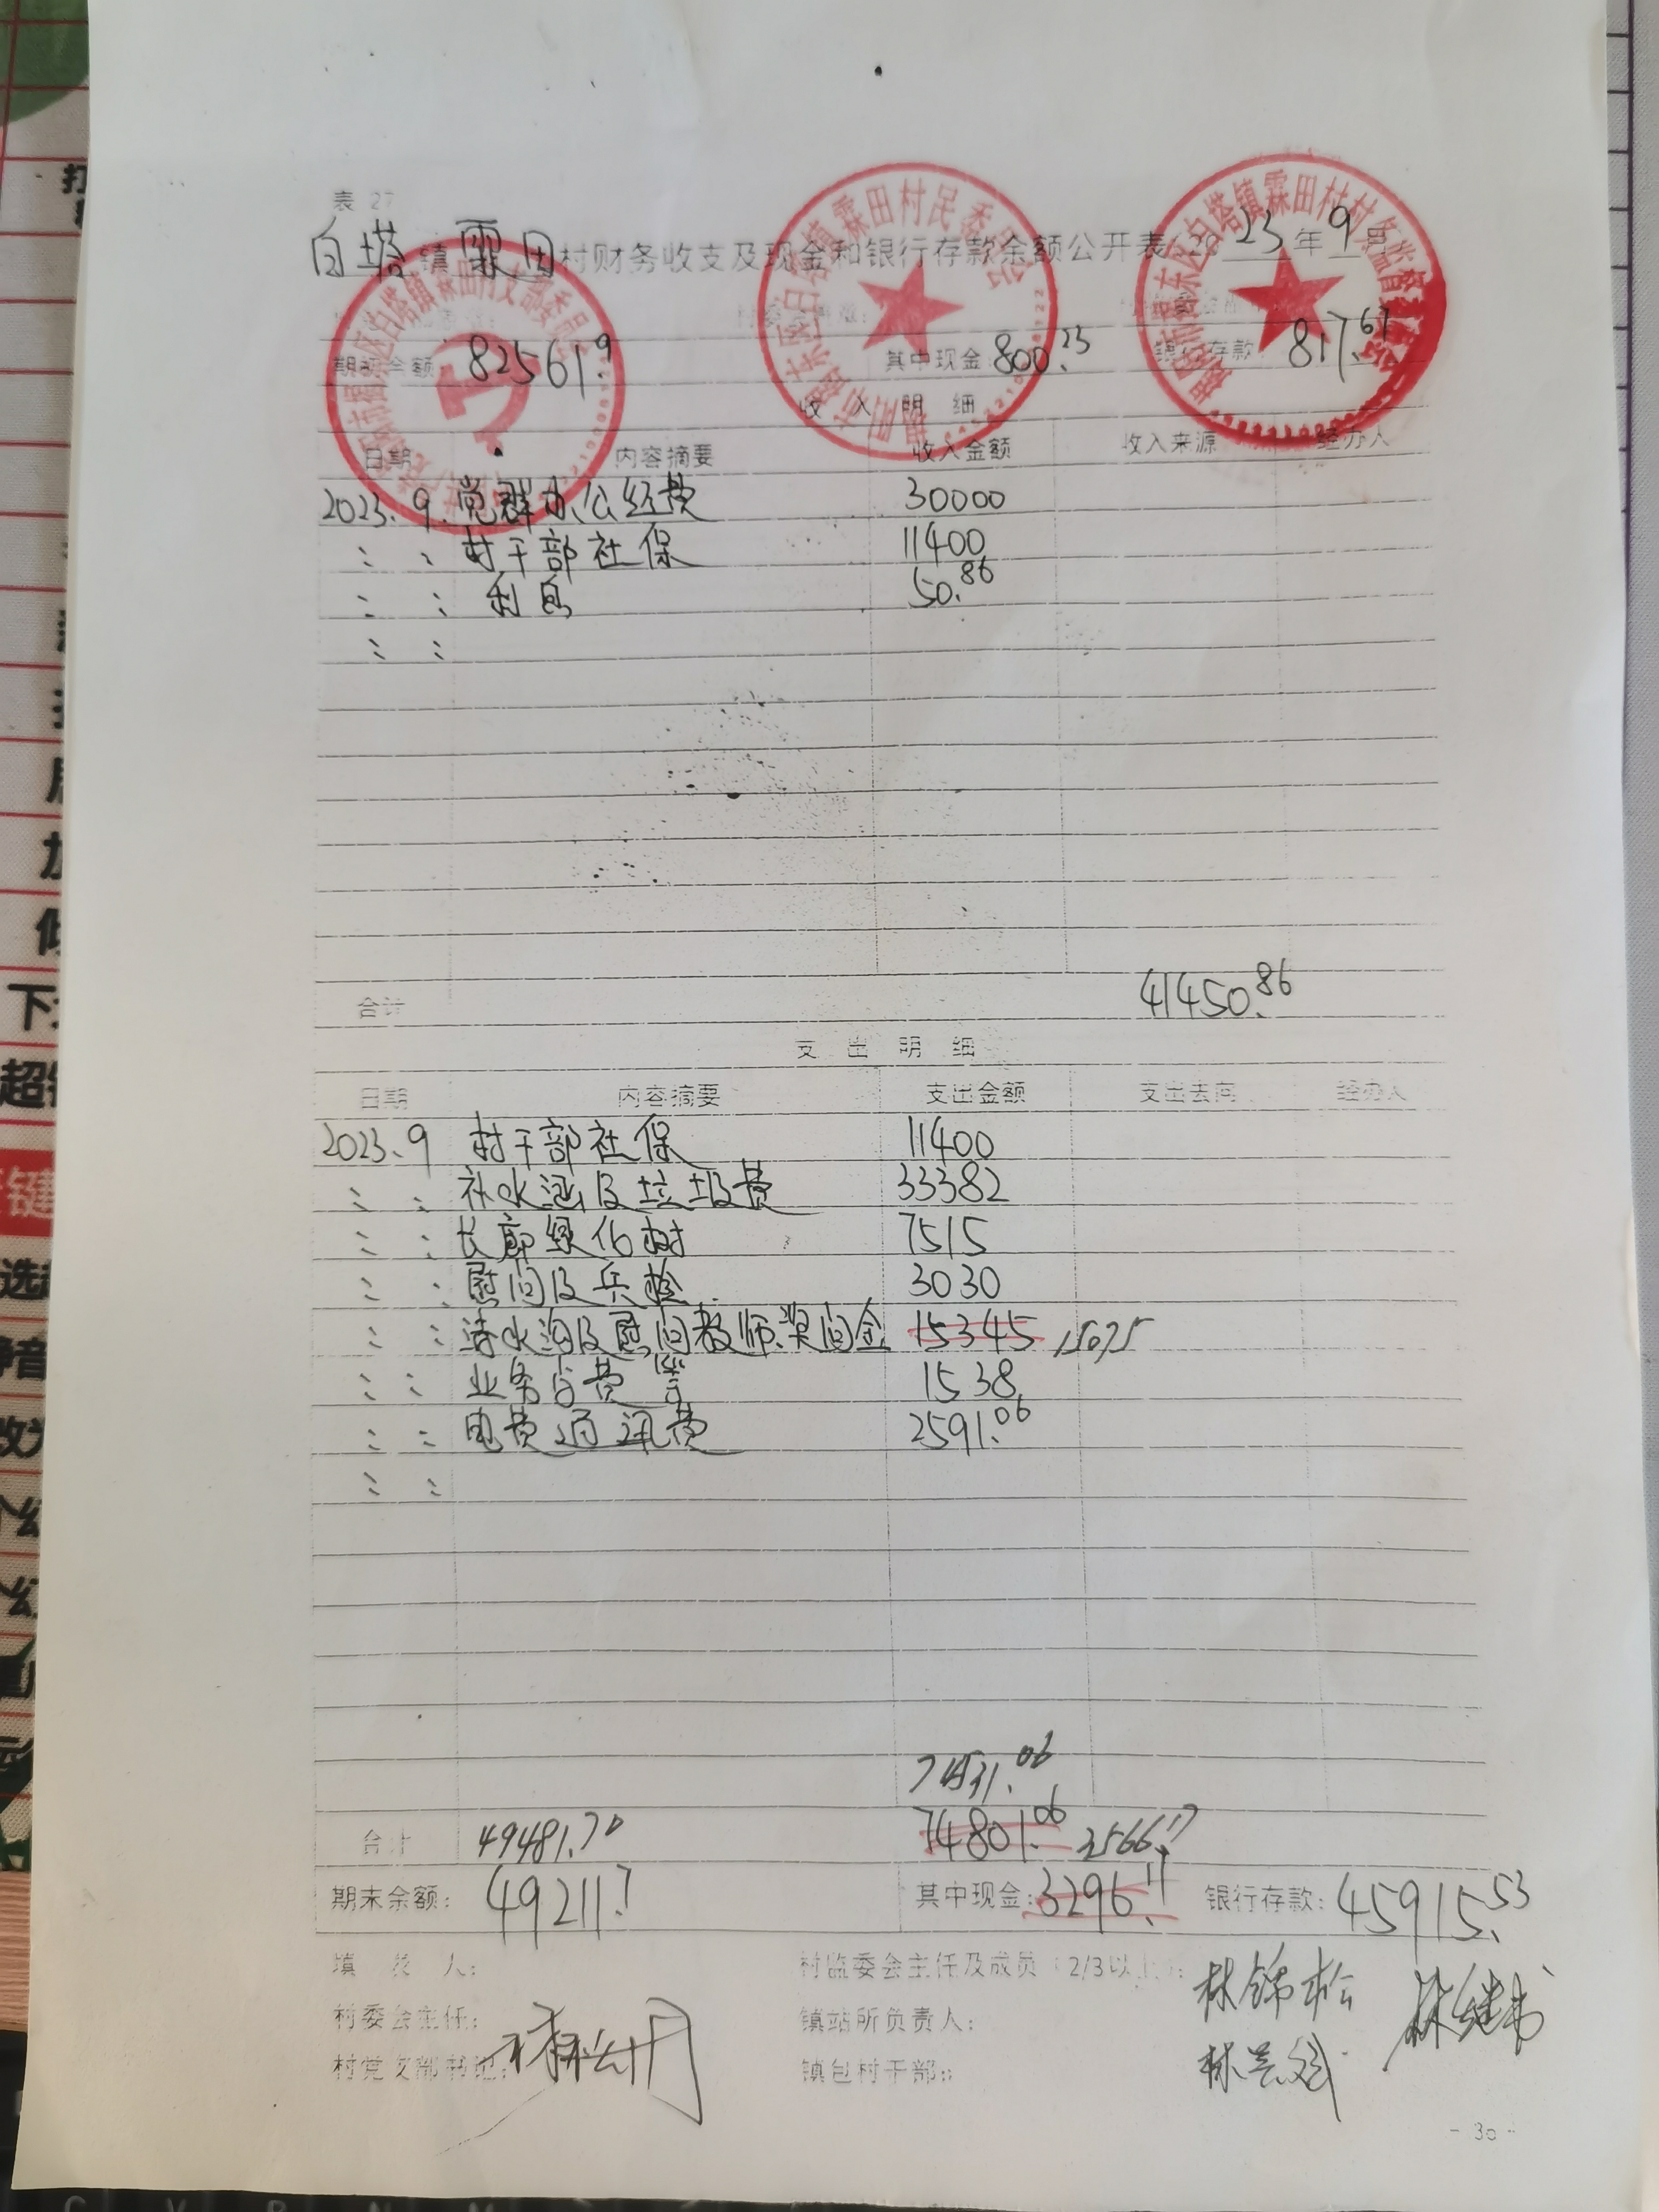 表 27
白塔镇霖田村财务收支及现金和银行存款余额公开表(2023年9月
期初余额 82561.9 其中现金:800.23 银行存款 817.67
收入明细
日期 内容摘要 收入金额 收入来源 经办人
2023.9. 党群办公经费 30000
〃 〃 村干部社保 11400
〃 〃 利息 50.86
〃 〃
合计 41450.86
支出明细
日期 内容摘要 支出金额 支出去向 经办人
2023.9 村干部社保 11400
〃 〃 补水涵及垃圾费 33382
〃 〃 长廊绿化树 7515
〃 〃 慰问及兵检 3030
〃 〃 清水沟及慰问教师奖问金 15345 15075
〃 〃 业务 费等 1538
〃 〃 电费通讯费 2591.06
〃 〃
74531.06
合计 49481.70 74801.06 3566.17
期末余额: 49211.7 其中现金:3296. 银行存款:45915.53
填表人: 村监委会主任及成员(2/3以上): 林锦松 林继书
村委会主任: 镇站所负责人:
村党支部书记: 镇包村干部:
- 30 -